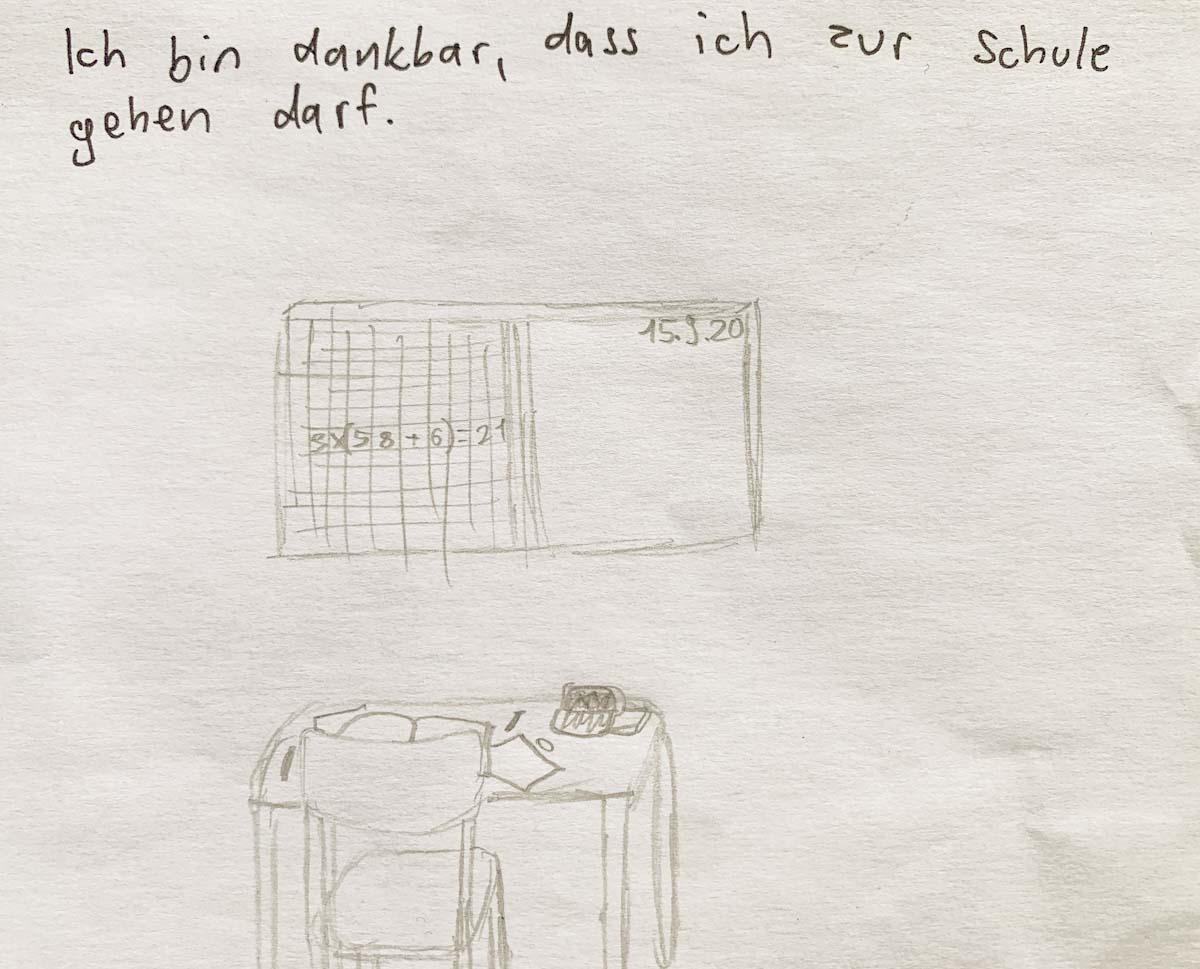 Ich bin dankbar, dass ich zur Schule
gehen darf.
15.9.20
3x(58+6)=21